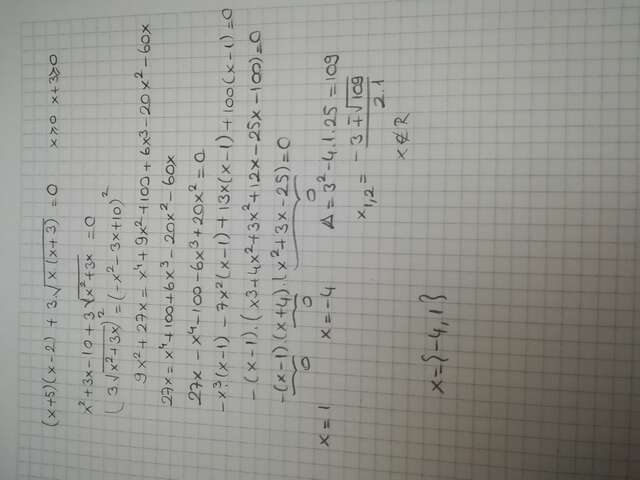 (x+5)(x-2) + 3√x.(x+3) = 0 x⩾0 x+3⩾0
x²+3x-10+3√x²+3x = 0
(3√x²+3x)² = (-x²-3x+10)²
9x²+27x = x⁴+9x²+100+6x³-20x²-60x
27x = x⁴+100+6x³-20x²-60x
27x-x⁴-100-6x³+20x² = 0
-x³.(x-1)-7x²(x-1)+13x(x-1)+100(x-1)=0
-(x-1).(x3+4x²+3x²+12x-25x-100)=0
-(x-1).(x+4).(x²+3x-25)=0
0 0 0
x=1 x=-4 Δ=3²-4.1.25=109
x₁,₂ = -3∓√109 / 2.1
x∉R
x={-4,1}